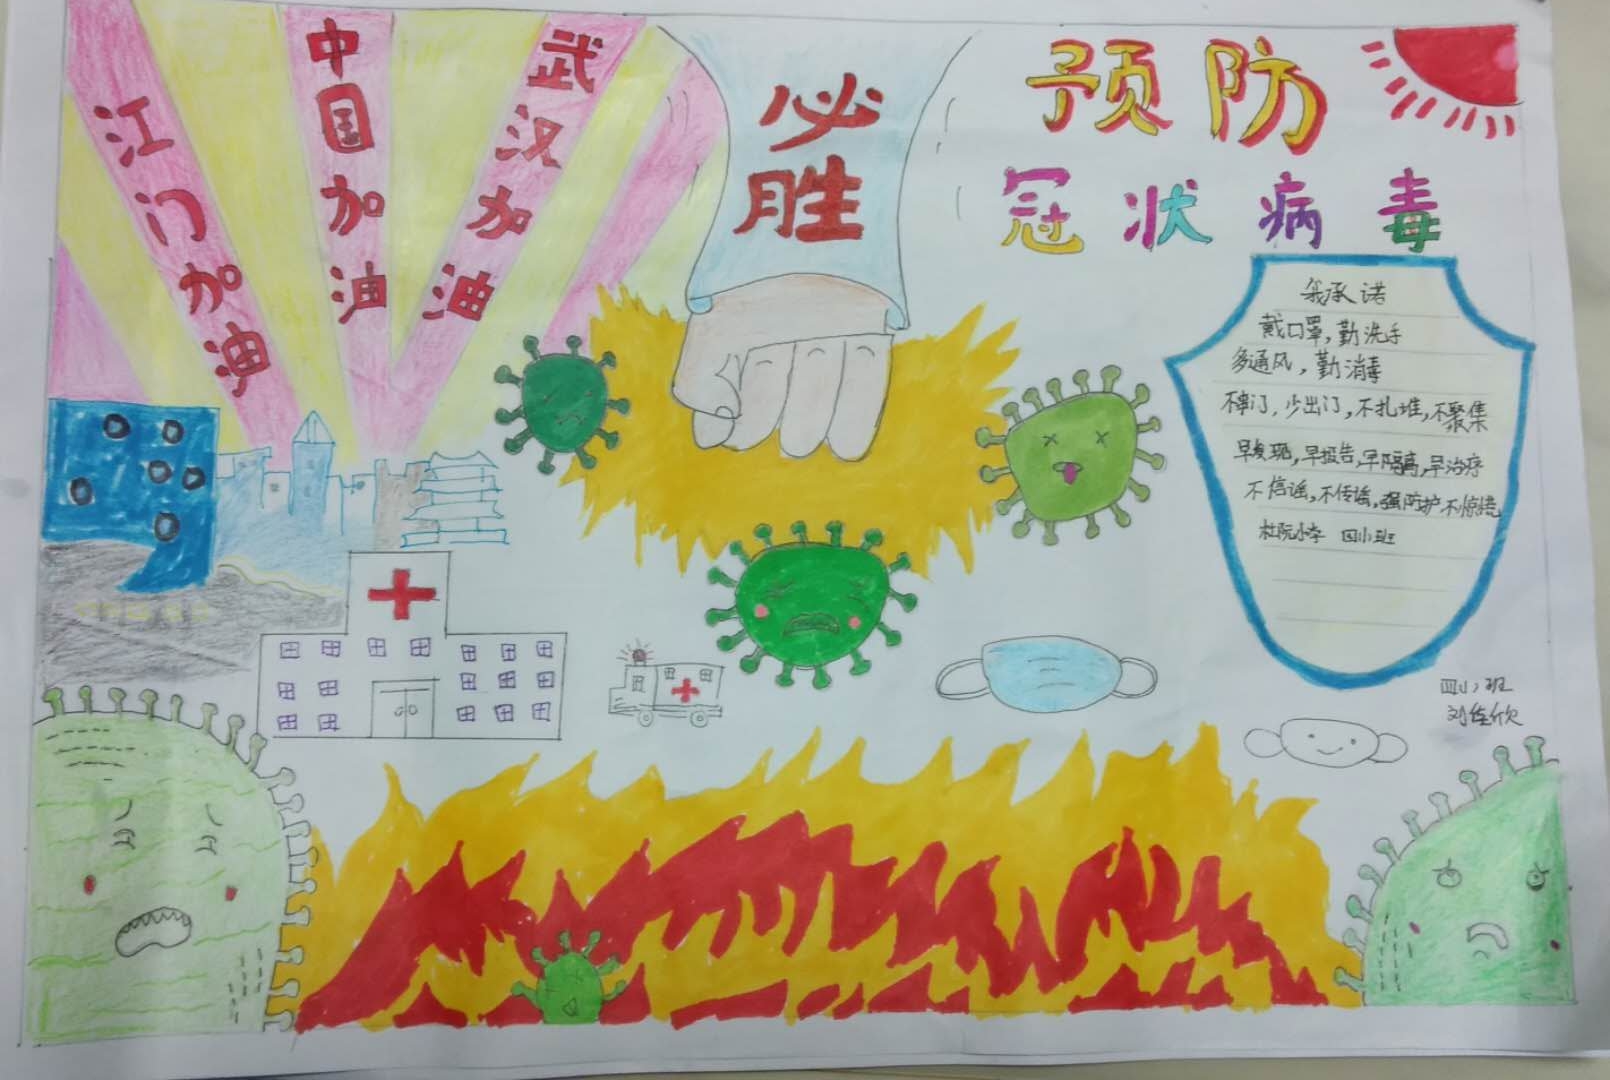 江门加油
中国加油
武汉加油
必胜
预防
冠状病毒
我承诺
戴口罩，勤洗手
多通风，勤消毒
不串门，少出门，不扎堆，不聚集
早发现，早报告，早隔离，早治疗
不信谣，不传谣，强防护不惊慌
杜阮小学 四小班
四小班
刘佳欣